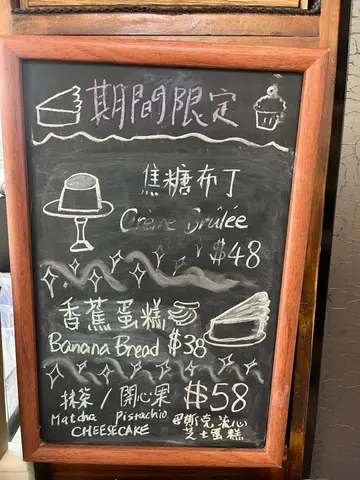 期間限定
焦糖布丁
Crème Brûlée
$48
香蕉蛋糕
Banana Bread $38
抹茶 / 開心果 $58
Matcha Pistachio 巴斯克流心
CHEESECAKE 芝士蛋糕